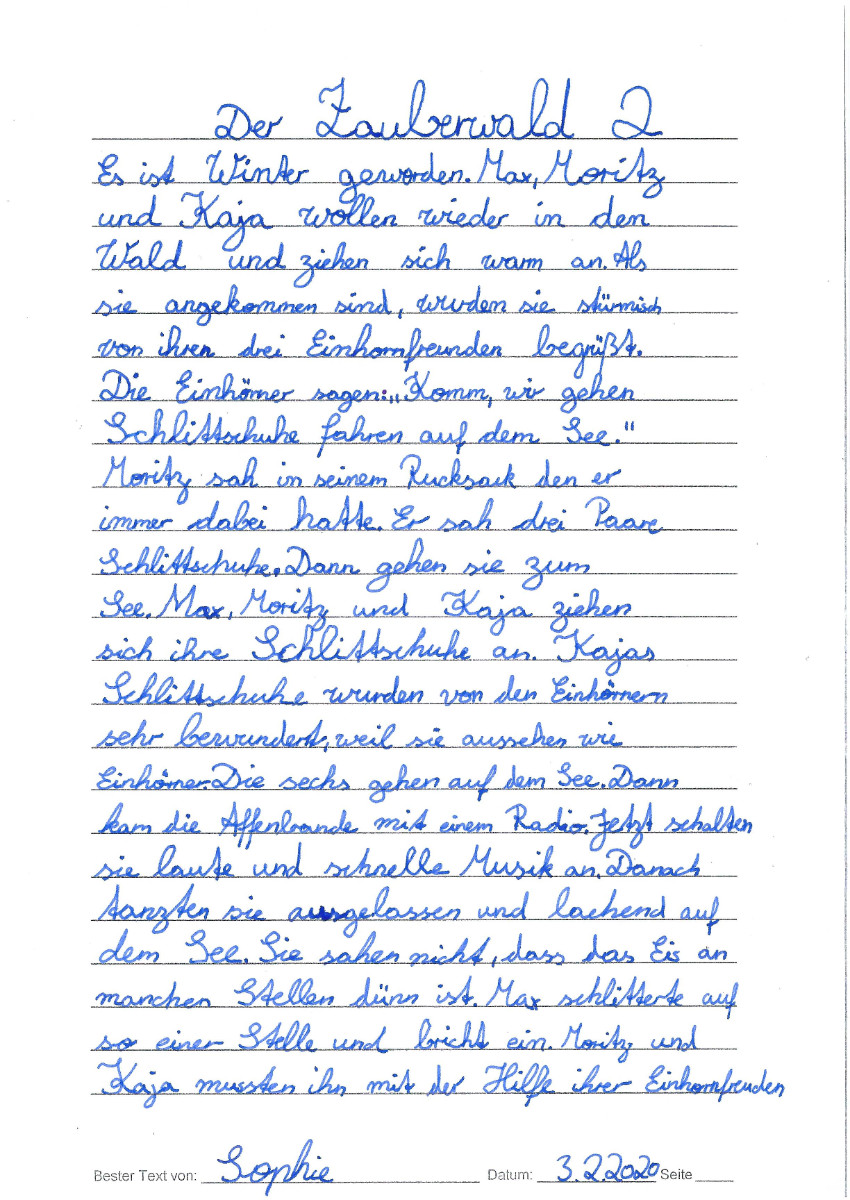 Der Zauberwald 2
Es ist Winter geworden. Max, Moritz
und Kaja wollen wieder in den
Wald und ziehen sich warm an. Als
sie angekommen sind, wurden sie stürmisch
von ihren drei Einhornfreunden begrüßt.
Die Einhörner sagen: „Komm, wir gehen
Schlittschuhe fahren auf dem See."
Moritz sah in seinem Rucksack den er
immer dabei hatte. Er sah drei Paare
Schlittschuhe. Dann gehen sie zum
See. Max, Moritz und Kaja ziehen
sich ihre Schlittschuhe an. Kajas
Schlittschuhe wurden von den Einhörnern
sehr bewundert, weil sie aussehen wie
Einhörner. Die sechs gehen auf dem See. Dann
kam die Affenbande mit einem Radio. Jetzt schalten
sie laute und schnelle Musik an. Danach
tanzten sie ausgelassen und lachend auf
dem See. Sie sahen nicht, dass das Eis an
manchen Stellen dünn ist. Max schlitterte auf
so einer Stelle und bricht ein. Moritz und
Kaja mussten ihn mit der Hilfe ihrer Einhornfreuden
Bester Text von: Sophie Datum: 3.2.2020 Seite